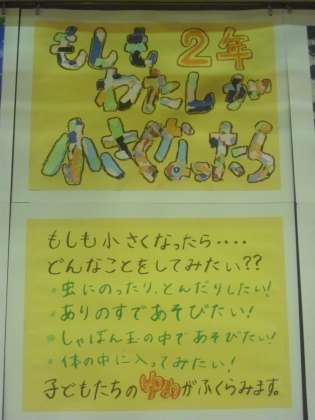 もしも 2年
わたしが
小さくなったら
もしも小さくなったら‥‥
どんなことをしてみたい??
・虫にのったり、とんだりしたい!
・ありのすであそびたい!
・しゃぼん玉の中であそびたい!
・体の中に入ってみたい!
子どもたちのゆめがふくらみます。